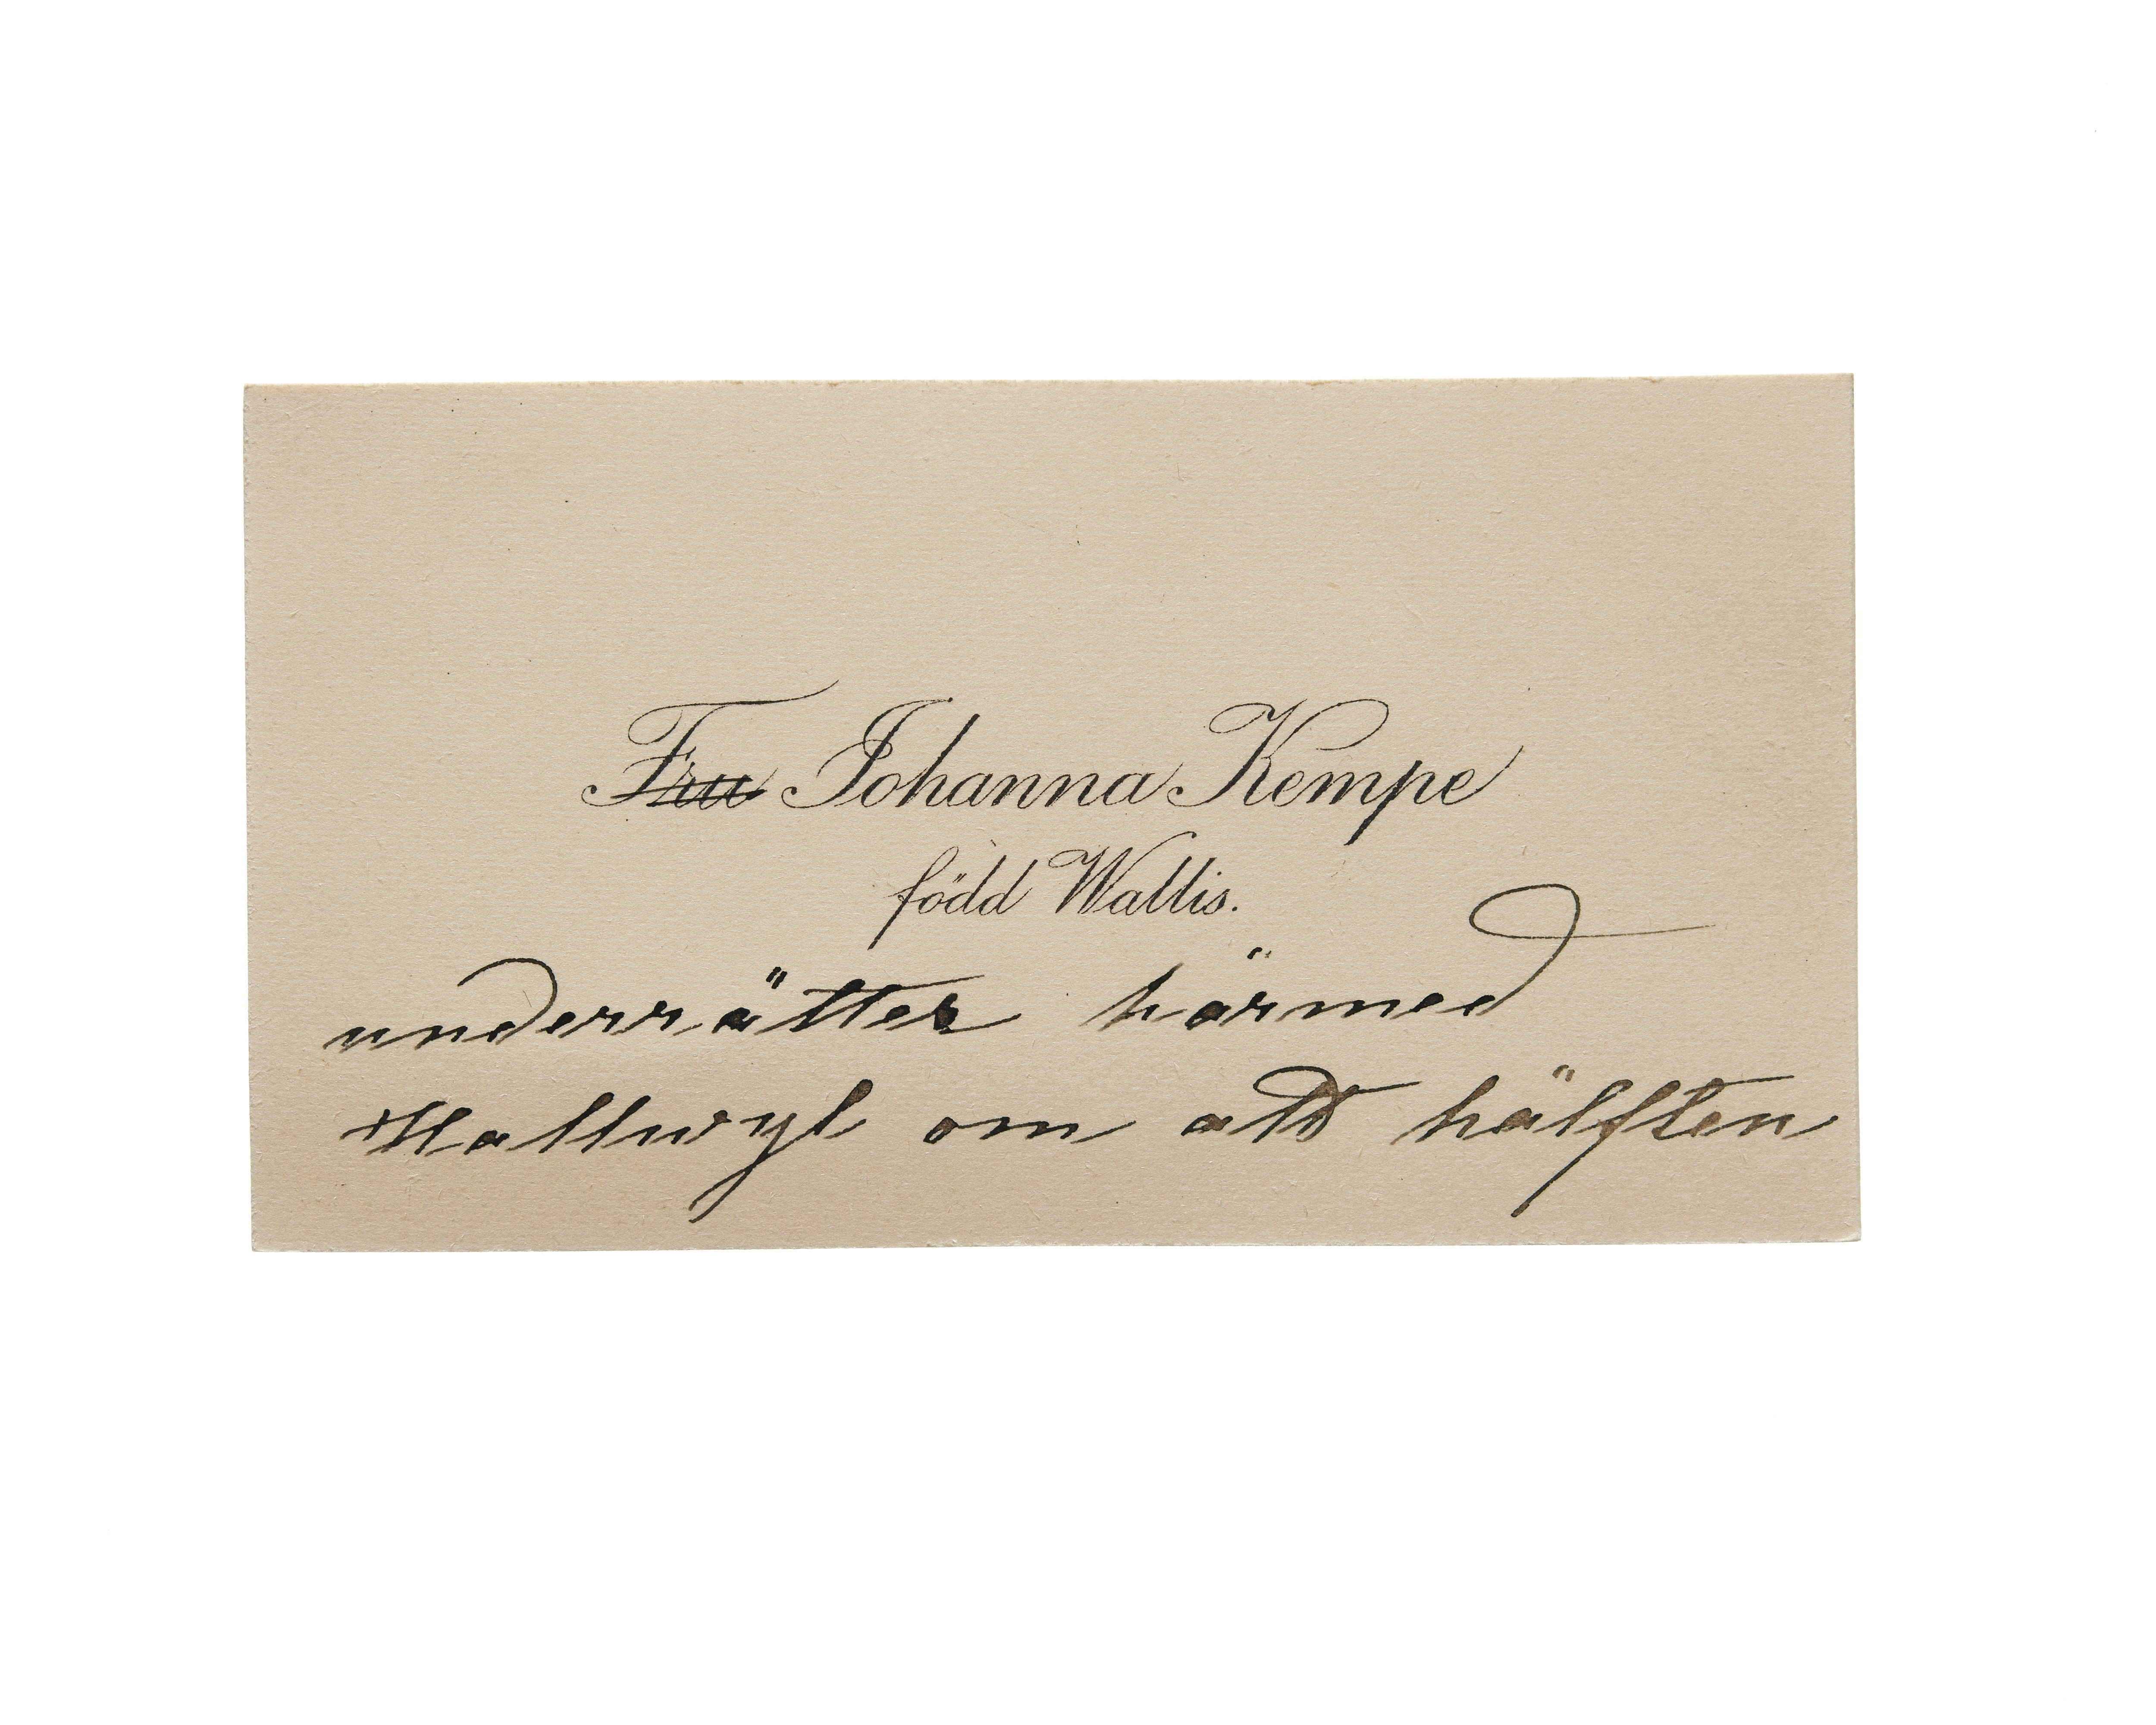 Fru Johanna Kempe
född Wallis.
underrätter härmed
Hallwyl om att hälften